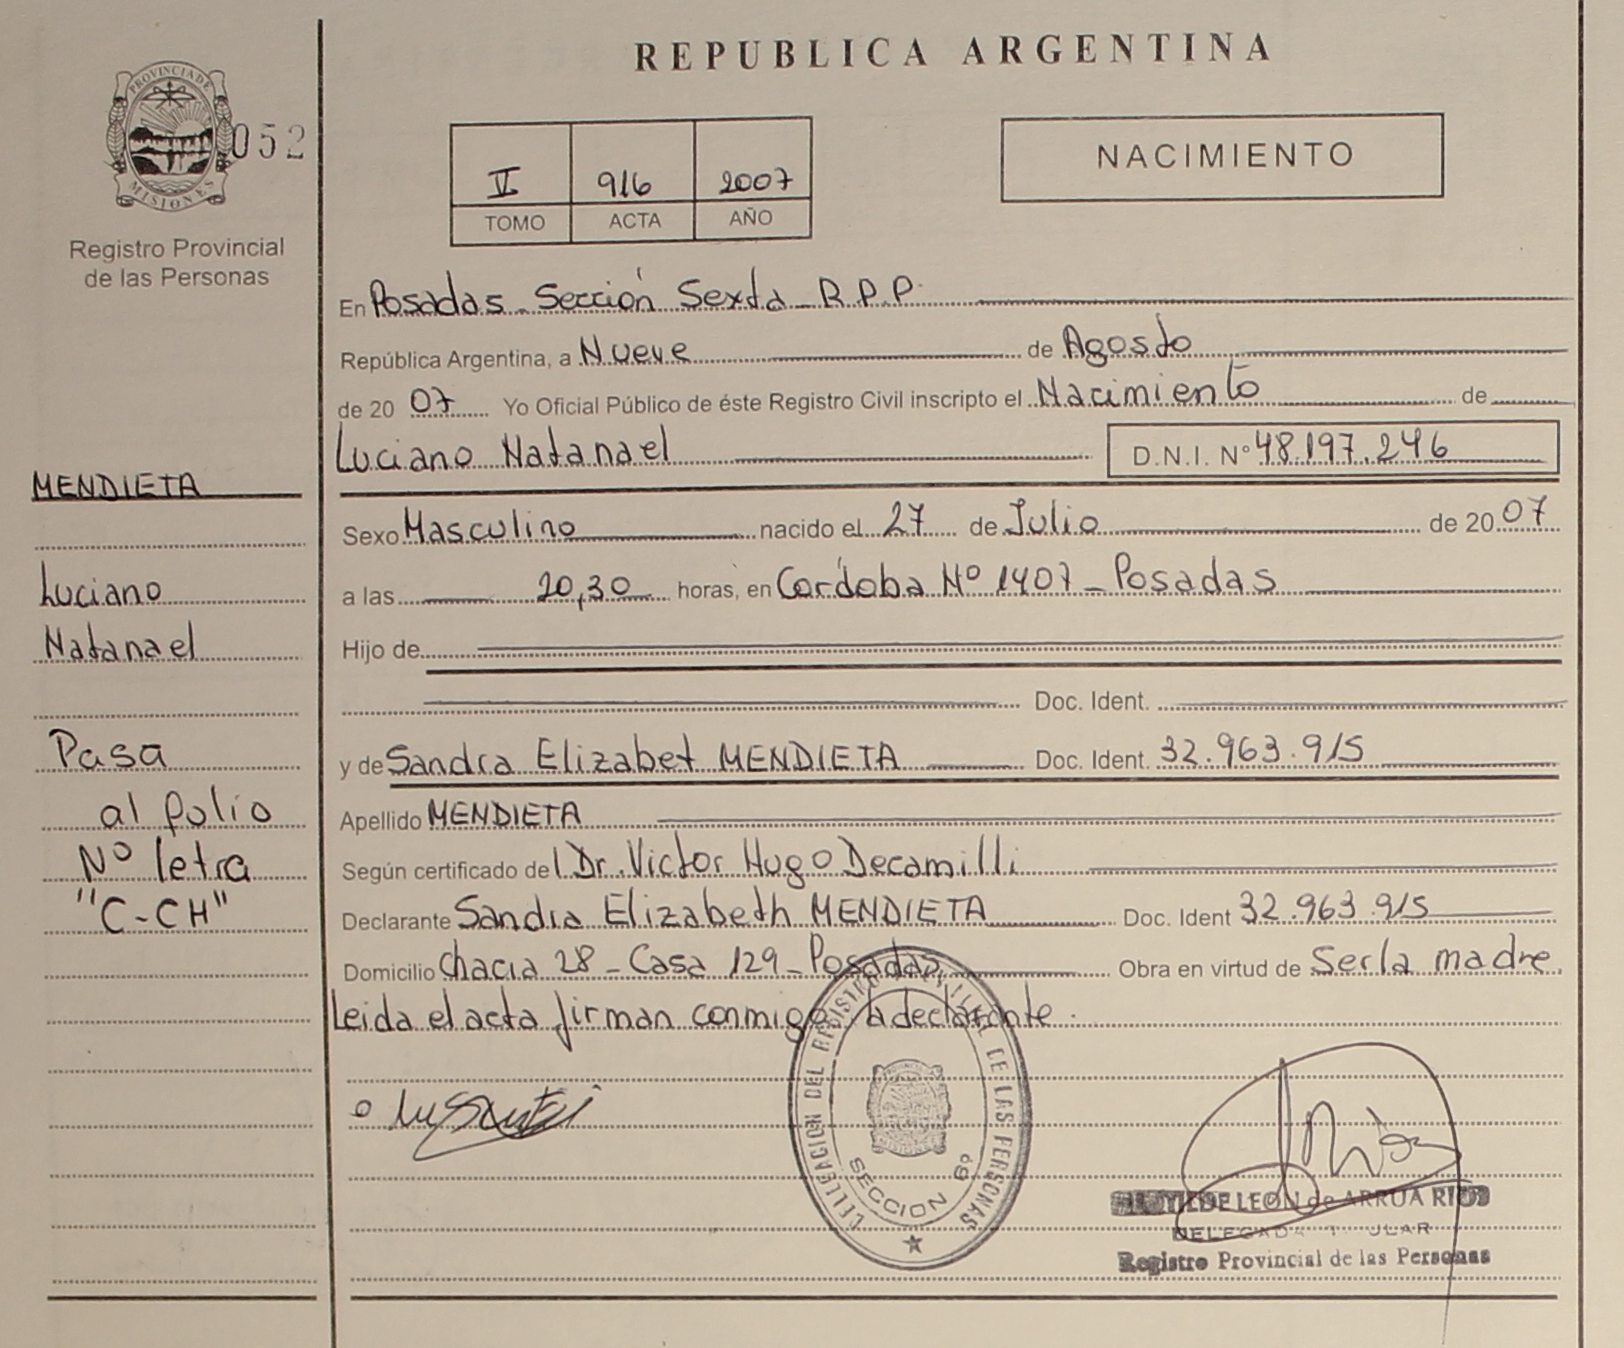 REPUBLICA ARGENTINA
PROVINCIA DE
MISIONES
052
Registro Provincial
de las Personas
II 916 2007
TOMO ACTA AÑO
NACIMIENTO
En Posadas - Sección Sexta - R.P.P.
República Argentina, a Nueve de Agosto
de 2007 Yo Oficial Público de éste Registro Civil inscripto el Nacimiento de
Luciano Natanael D.N.I. Nº 48.197.246
Sexo Masculino nacido el 27 de Julio de 2007
a las 20,30 horas, en Cordoba Nº 1407 - Posadas
Hijo de
Doc. Ident.
y de Sandra Elizabet MENDIETA Doc. Ident. 32.963.915
Apellido MENDIETA
Según certificado del Dr. Victor Hugo Decamilli
Declarante Sandra Elizabeth MENDIETA Doc. Ident 32.963.915
Domicilio Chacra 28 - Casa 129 - Posadas Obra en virtud de Ser la madre.
Leida el acta firman conmigo la declarante.
MENDIETA
Luciano
Natanael
Pasa
al folio
Nº letra
"C-CH"
DELEGACION DEL REGISTRO DE LAS PERSONAS
SECCION 6º
DE LEON de ARRUA RIOS
DELEGADA
Registro Provincial de las Personas